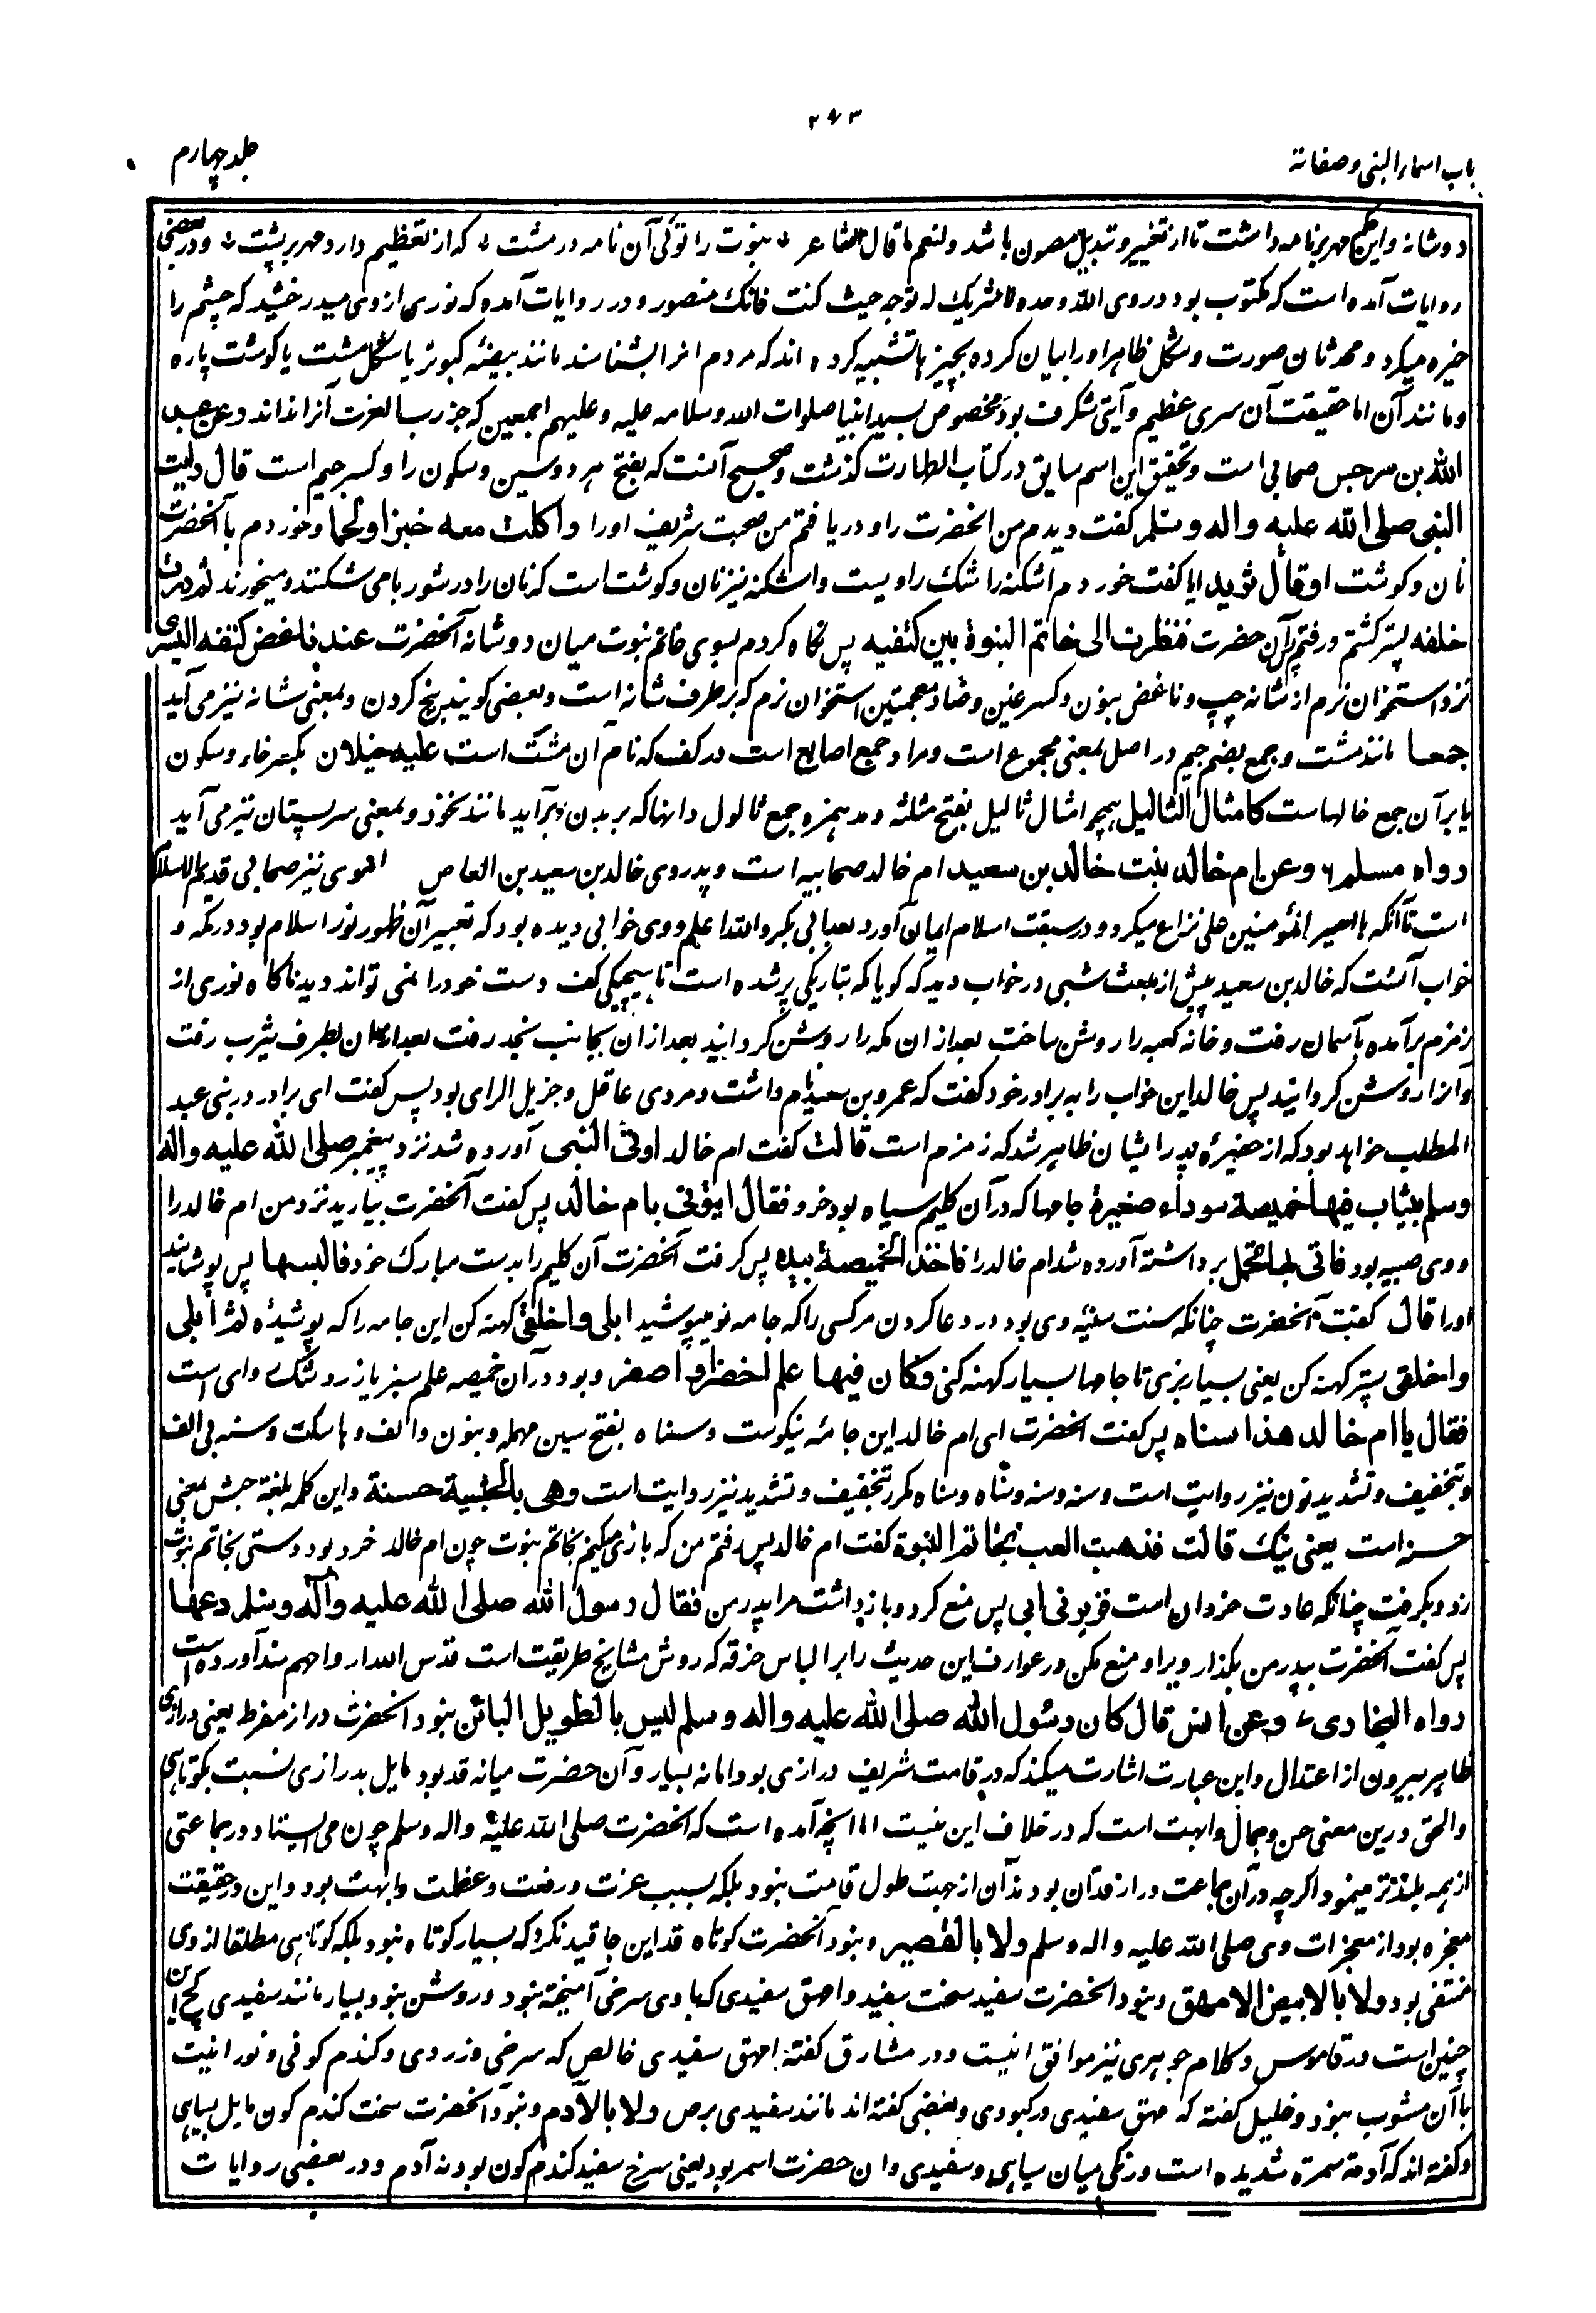 ۲۹۳
باب اسماء النبی وصفاته
جلد چهارم
دوشانه واین حکم مهر بر نامه داشت تا از تغییر و تبدیل مصون باشد ولنعم ما قال الشاعر ؞ نبوت را توئی آن نامه در مشت ؞ که از تعظیم دارد مهر بر پشت ؞ ودر بعضی
روایات آمده است که مکتوب بود در وی الله وحده لا شریک له توجه حیث کنت فانک منصور ودر روایات آمده که نوری از وی میدرخشید که چشم را
خیره میکرد ومحدثان صورت وشکل ظاهر اورا بیان کرده بچیزها تشبیه کرده اند که مردم انرا بشناسند مانند بیضئه کبوتر یا شکل مشت یا کوشت پاره
ومانند آن اما حقیقت آن سری عظیم وآیتی شکرف بود مخصوص بسید انبیا صلوات الله وسلامه علیه وعلیهم اجمعین که جز رب العزت آنرا نداند وعن عبد
الله بن سرجس صحابی است وتحقیق این اسم سابق در کتاب الطهارت کذشت وصحیح آنست که بفتح هر دو سین وسکون را وکسر جیم است قال رایت
النبی صلی الله علیه واله وسلم کفت دیدم من انحضرت را ودریافتم من صحبت شریف اورا واکلت معه خبزا ولحما وخوردم با آنحضرت
نان وکوشت او قال ثریدا یا کفت خوردم اشکنه را شک راویست واشکنه نیز نان وکوشت است که نان را در شوربا می شکنند ومیخورند ثم درت
خلفه پستر کشتم ورفتم پس آن حضرت فنظرت الی خاتم النبوة بین کتفیه پس نکاه کردم بسوی خاتم نبوت میان دوشانه آنحضرت عند ناغض کتفه الیسری
نزد استخوان نرم از شانه چپ وناغض بنون وکسر غین وضاد معجمتین استخوان نرم که بر طرف شانه است وبعضی کویند بیخ کردن وبمعنی شانه نیز می آید
جمعا مانند مشت وجمع بضم جیم در اصل بمعنی مجموع است ومراد جمع اصابع است در کف که نام آن مشت است علیه خیلان بکسر خاء وسکون
یا بر آن جمع خالهاست کامثال الثالیل همچو امثال ثالیل بفتح مثلثه ومد همزه جمع ثالول دانها که بر بدن برآید مانند نخود وبمعنی سر پستان نیز می آید
رواه مسلم ؞ وعن ام خالد بنت خالد بن سعید ام خالد صحابیه است وپدر وی خالد بن سعید بن العاص اموی نیز صحابی قدیم الاسلام
است تا آنکه با امیر المؤمنین علی نزاع میکرد ودر سبقت اسلام ایمان آورد بعد ابی بکر والله اعلم ووی خوابی دیده بود که تعبیر آن ظهور نور اسلام بود در مکه و
خواب آنست که خالد بن سعید پیش از مبعث شبی در خواب دید که کویا مکه بتاریکی پر شده است تا هیچیکی کف دست خودرا نمی تواند دید ناکاه نوری از
زمزم برآمده بآسمان رفت وخانه کعبه را روشن ساخت بعد از ان مکه را روشن کردانید بعد از ان بجانب نجد رفت بعد از ان بطرف یثرب رفت
وآنرا روشن کردانید پس خالد این خواب را به برادر خود کفت که عمرو بن سعید نام داشت ومردی عاقل وجزیل الرای بود پس کفت ای برادر در بنی عبد
المطلب خواهد بود که از حفیره پدر ایشان ظاهر شد که زمزم است قالت کفت ام خالد اوتی النبی آورده شد نزد پیغمبر صلی الله علیه واله
وسلم بثیاب فیها خمیصة سوداء صغیرة جامها که در آن کلیم سیاه بود خرد فقال ایتونی بام خالد پس کفت آنحضرت بیارید نزد من ام خالد را
ووی صبیه بود فاتی بها تحمل برداشته آورده شد ام خالد را فاخذ الخمیصة بیده پس کرفت آنحضرت آن کلیم را بدست مبارک خود فالبسها پس پوشانید
اورا قال کفت آنحضرت چنانکه سنت سنیه وی بود در دعا کردن مر کسی را که جامه نو میپوشید ابلی واخلقی کهنه کن این جامه را که پوشیده ثم ابلی
واخلقی پستر کهنه کن یعنی بسیار بزی تا جامها بسیار کهنه کنی وکان فیها علم اخضر او اصفر وبود در آن خمیصه علم سبز یا زرد شک راوی است
فقال یا ام خالد هذا سناه پس کفت انحضرت ای ام خالد این جامئه نیکوست وسناه بفتح سین مهمله وبنون والف وها سکت وسنه بی الف
وبتخفیف وتشدید نون نیز روایت است وسنه وسنه وسناه وسناه مکرر تخفیف وتشدید نیز روایت است وهی بالحبشیة حسنة واین کلمه بلغة حبش بمعنی
حسنه است یعنی نیک قالت فذهبت العب بخاتم النبوة کفت ام خالد پس رفتم من که بازی میکنم بخاتم نبوت چون ام خالد خرد بود دستی بخاتم نبوت
زد وبکرفت چنانکه عادت خردان است فزبرنی ابی پس منع کرد وباز داشت مرا پدر من فقال رسول الله صلی الله علیه وآله وسلم دعها
پس کفت آنحضرت بپدر من بکذار ویرا ومنع مکن در عوارف این حدیث را بر الباس خرقه که روش مشایخ طریقت است قدس الله ارواحهم سند آورده است
رواه البخاری ؞ وعن انس قال کان رسول الله صلی الله علیه واله وسلم لیس بالطویل البائن نبود انحضرت دراز مفرط یعنی درازی
ظاهر بیرون از اعتدال واین عبارت اشارت میکند که در قامت شریف درازی بود اما نه بسیار وآن حضرت میانه قد بود مایل بدرازی نسبت بکوتاهی
والحق درین معنی حسن وجمال وابهت است که در خلاف این نیست اما انچه آمده است که انحضرت صلی الله علیه واله وسلم چون می ایستاد در جماعتی
از همه بلندتر مینمود اکرچه در آن جماعت دراز قدان بودند آن از جهت طول قامت نبود بلکه بسبب عزت ورفعت وعظمت وابهت بود واین در حقیقت
معجزه بود از معجزات وی صلی الله علیه واله وسلم ولا بالقصیر ونبود آنحضرت کوتاه قد این جا قید نکرد که بسیار کوتاه نبود بلکه کوتاهی مطلقا از وی
منتفی بود ولا بالابیض الامهق ونبود انحضرت سفید سخت سفید وامهق سفیدی که با وی سرخی آمیخته نبود وروشن نبود بسیار مانند سفیدی کچ این
چنین است در قاموس وکلام جوهری نیز موافق اینست ودر مشارق کفته امهق سفیدی خالص که سرخی وزردی وکندم کونی ونورانیت
با آن مشوب نبود وخلیل کفته که مهق سفیدی در کبودی وبعضی کفته اند مانند سفیدی برص ولا بالآدم ونبود آنحضرت سخت کندم کون مایل بسیاهی
وکفته اند که آدمة سمرة شدیده است ورنکی میان سیاهی وسفیدی وان حضرت اسمر بود یعنی سرخ سفید کندم کون بود نه آدم ودر بعضی روایات